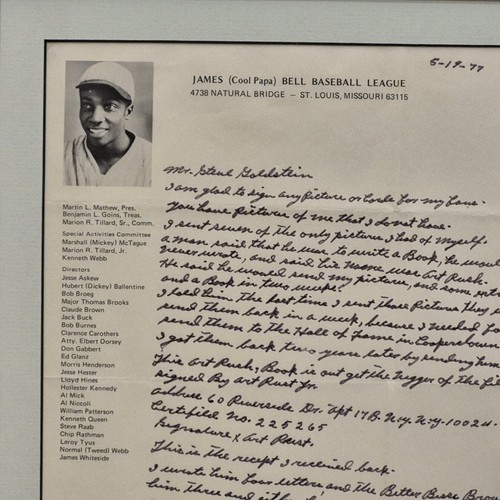 5-19-77
JAMES (Cool Papa) BELL BASEBALL LEAGUE
4738 NATURAL BRIDGE – ST. LOUIS, MISSOURI 63115
Martin L. Mathew, Pres.
Benjamin L. Goins, Treas.
Marion R. Tillard, Sr., Comm.
Special Activities Committee
Marshall (Mickey) McTague
Marion R. Tillard, Jr.
Kenneth Webb
Directors
Jesse Askew
Hubert (Dickey) Ballentine
Bob Broeg
Major Thomas Brooks
Claude Brown
Jack Buck
Bob Burnes
Clarence Carothers
Atty. Elbert Dorsey
Don Gabbert
Ed Glanz
Morris Henderson
Jesse Hester
Lloyd Hines
Hollester Kennedy
Al Mick
Al Niccoli
William Patterson
Kenneth Queen
Steve Raab
Chip Rathman
Leroy Tyus
Normal (Tweed) Webb
James Whiteside
Mr. Steve Goldstein
I am glad to sign any Picture or for my
you have Pictures of me that I do not have.
I sent seven of the only pictures I had of myself.
a man said that he was to write a Book, he would
never wrote, and said his name was Art Rush.
He said he would send my picture, and some
and a Book in two weeks.
I told him the last time I sent those Pictures they
send them back in a week, because I needed
send them to the Hall of Fame in Cooperstown
I got them back two years later by sending him
This Art Rush, Book is out get the of the
signed By Art Rust for
address 60 Riverside Dr. Apt 17B. N.y. N-y-10024.
Certified No. 225265
Signature x Art Rust.
This is the recept I received back.
I wrote him four letters and the Better Bisse
him three and